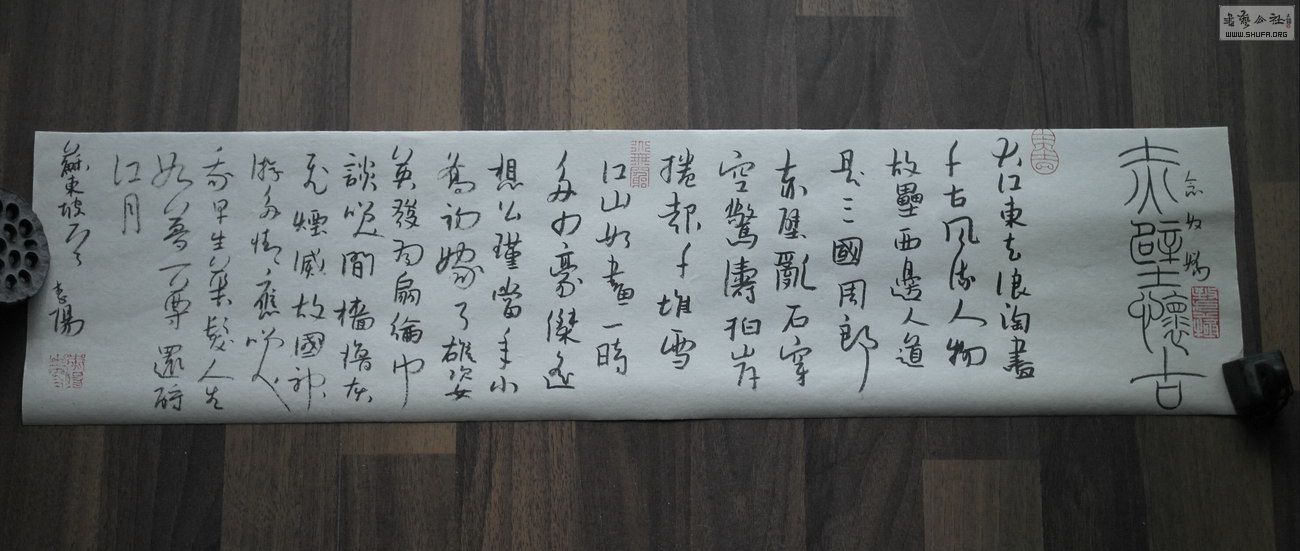 念奴嬌
赤壁懷古
大江東去浪淘盡
千古風流人物
故壘西邊人道
是三國周郎
赤壁亂石穿
空驚濤拍岸
捲起千堆雪
江山如畫一時
多少豪傑遙
想公瑾當年小
喬初嫁了雄姿
英發羽扇綸巾
談笑間檣櫓灰
飛煙滅故國神
游多情應笑
我早生華髮人生
如夢一尊還酹
江月
蘇東坡詞
書藝公社
WWW.SHUFA.ORG